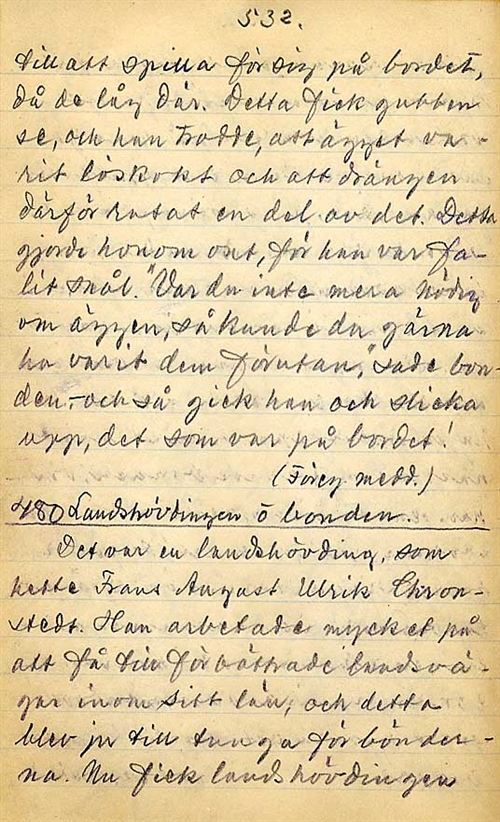 532.
till att spilla för sig på bordet,
då de låg där. Detta fick gubben
se, och han trodde, att ägget va-
rit löskokt och att drängen
därför ratat en del av det. Detta
gjorde honom ont, för han var fa-
lit snål. "Var du inte mera nödig
om äggen, så kunde du gärna
ha varit dem förutan," sade bon-
den, - och så gick han och slicka
upp, det som var på bordet!
(Föreg. medd.)
480 Landshövdingen o bonden.
Det var en landshövding, som
hette Frans August Ulrik Chron-
stedt. Han arbetade mycket på
att få till förbättrade landsvä-
gar inom sitt län, och detta
blev ju till tunga för bönder-
na. Nu fick landshövdingen